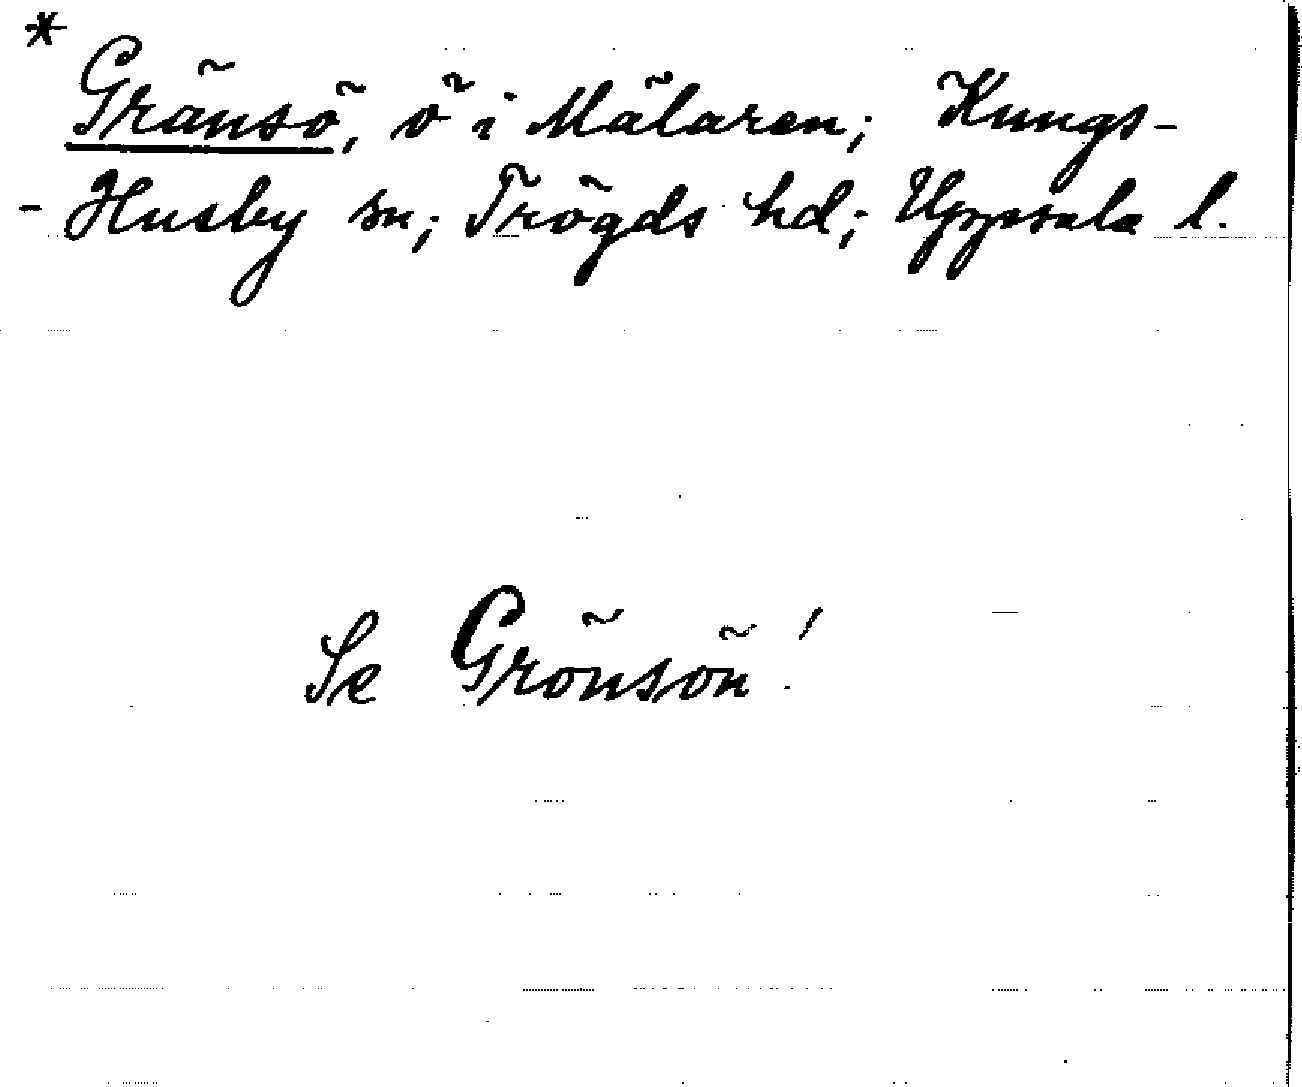 * Gränsö, ö i Mälaren; Kungs-
- Husby sn; Trögds hd; Uppsala l.
Se Grönsön!